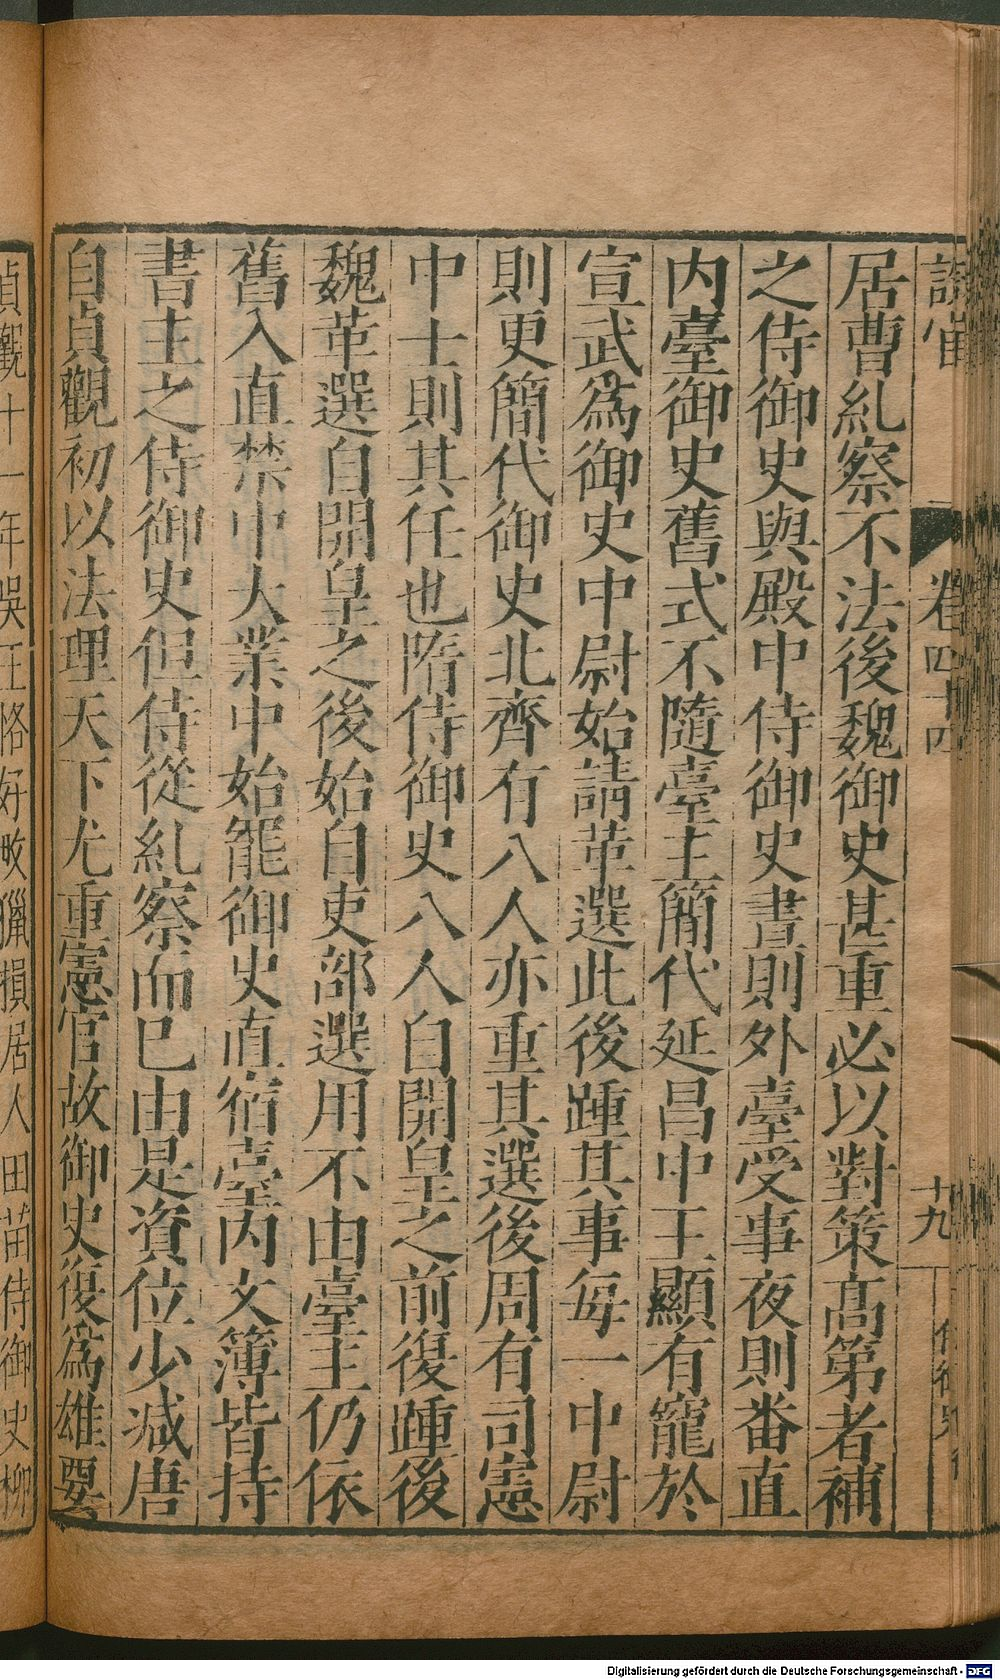 卷四十四
十九
居曹糺察不法後魏御史甚重必以對策高第者補
之侍御史與殿中侍御史晝則外臺受事夜則番直
内臺御史舊式不隨臺主簡代延昌中王顯有寵於
宣武爲御史中尉始請革選此後踵其事每一中尉
則更簡代御史北齊有八人亦重其選後周有司憲
中士則其任也隋侍御史八人自開皇之前復踵後
魏革選自開皇之後始自吏部選用不由臺主仍依
舊入直禁中大業中始罷御史直宿臺内文簿皆持
書主之侍御史但侍從糺察而已由是資位少減唐
自貞觀初以法理天下尤重憲官故御史復爲雄要
貞觀十一年吳王恪好畋獵損居人田苗侍御史柳
Digitalisierung gefördert durch die Deutsche Forschungsgemeinschaft - DFG